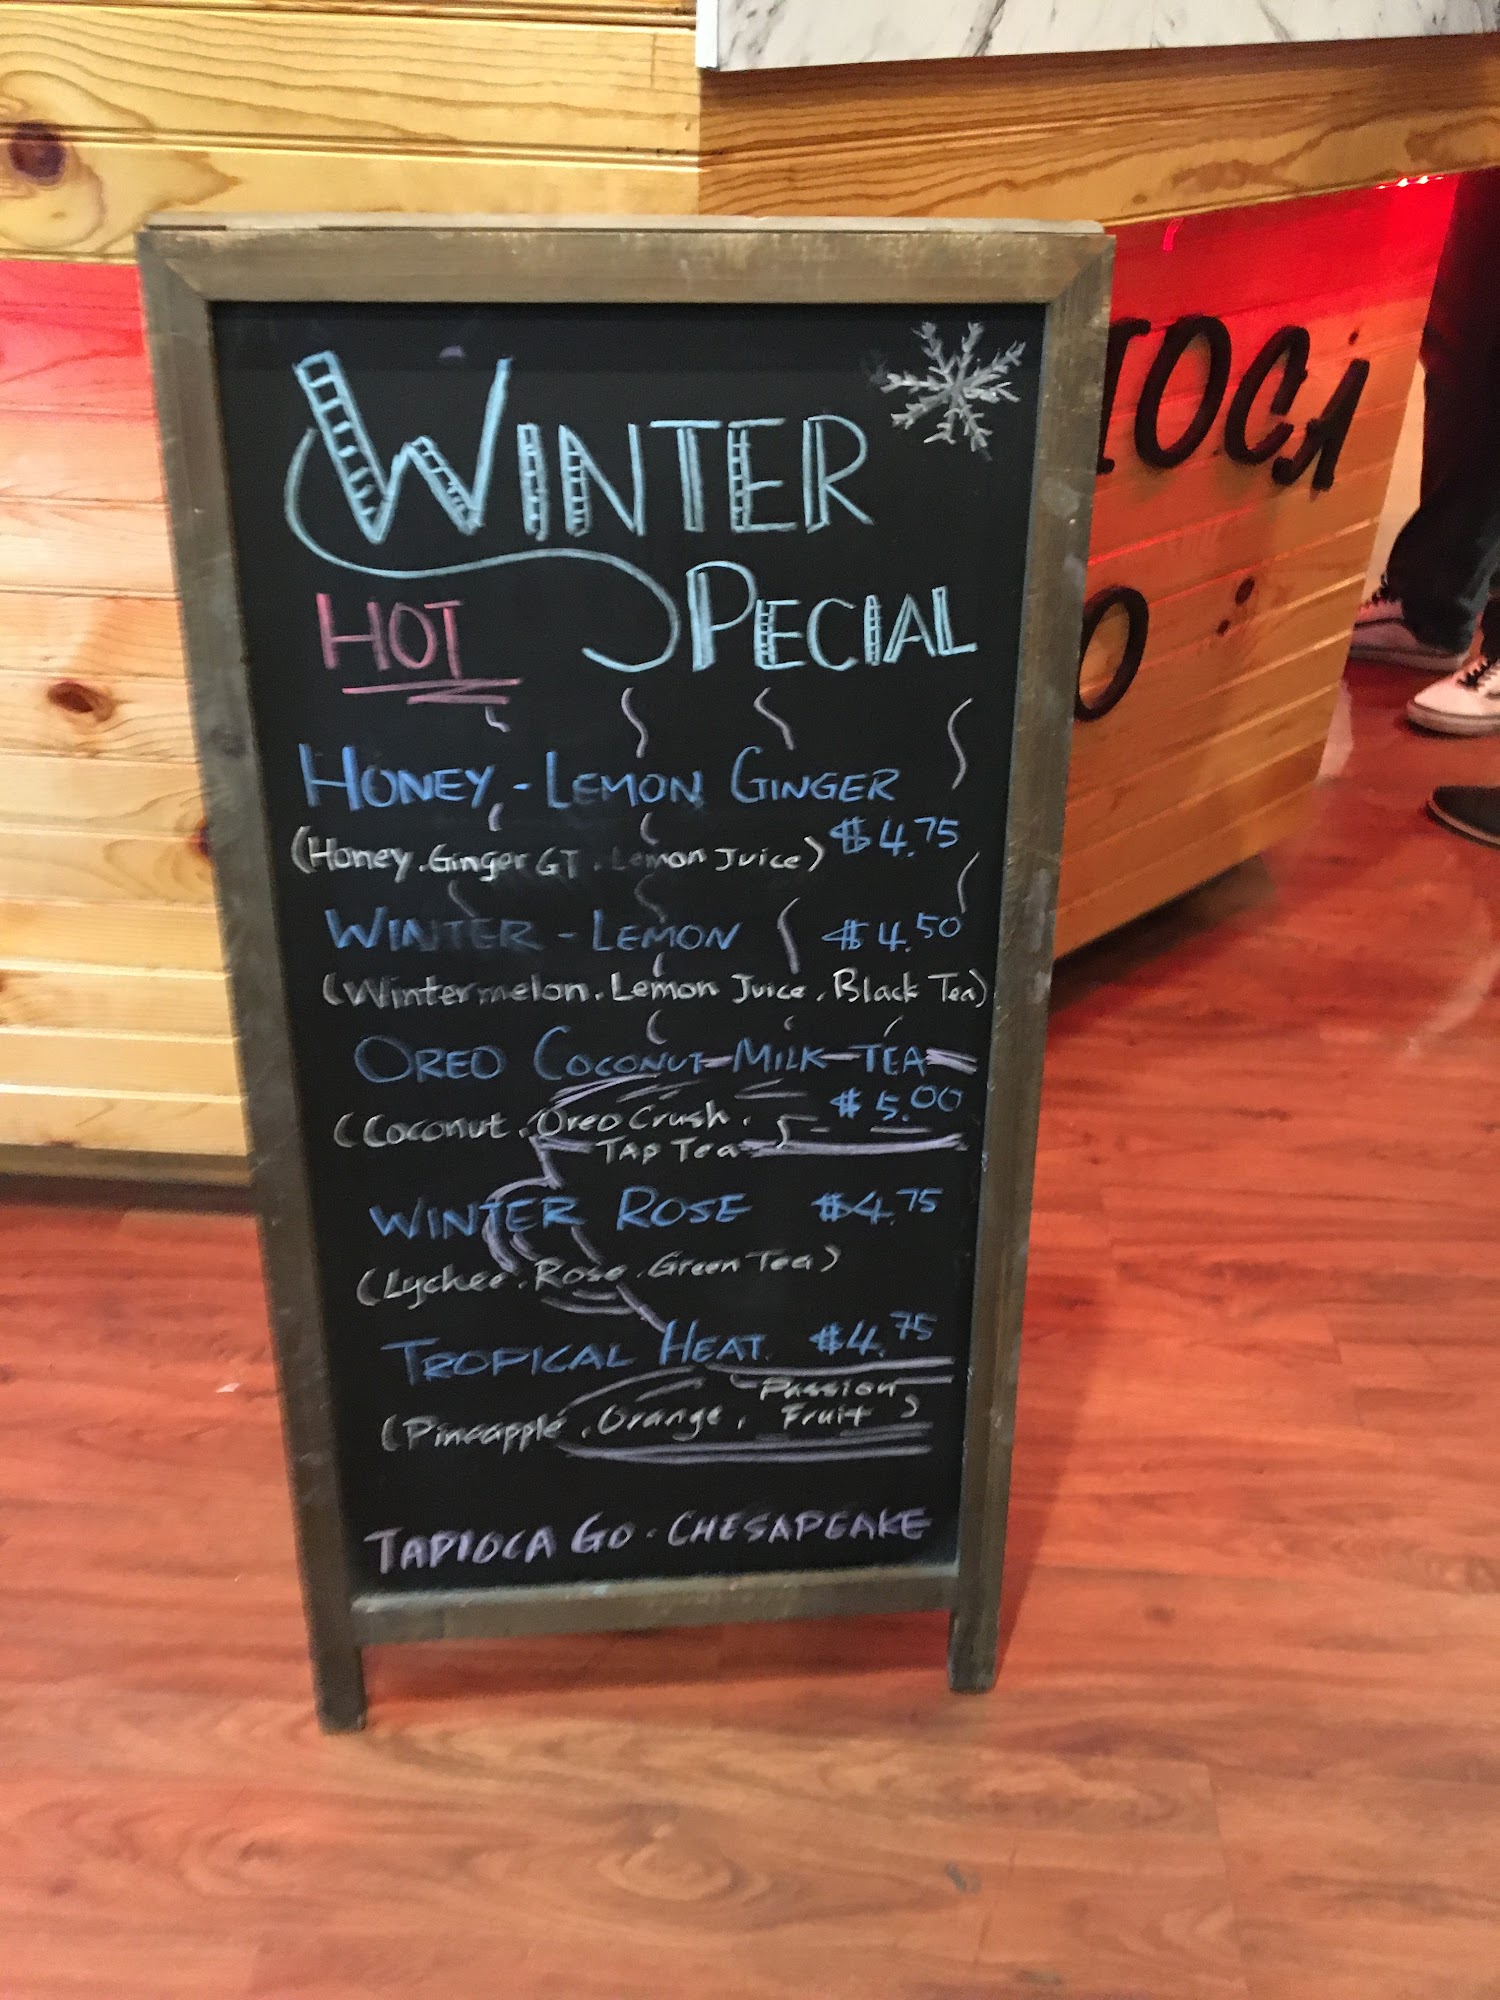 WINTER
HOT SPECIAL
HONEY - LEMON GINGER
(Honey. Ginger GT. Lemon Juice) $4.75
WINTER - LEMON $4.50
(Wintermelon. Lemon Juice. Black Tea)
OREO COCONUT MILK TEA
(Coconut. Oreo Crush. $5.00
TAP TEA
WINTER ROSE $4.75
(Lychee. Rose. Green Tea)
TROPICAL HEAT. $4.75
(Pineapple. Orange, Passion
Fruit)
TAPIOCA GO - CHESAPEAKE
IOCA
O